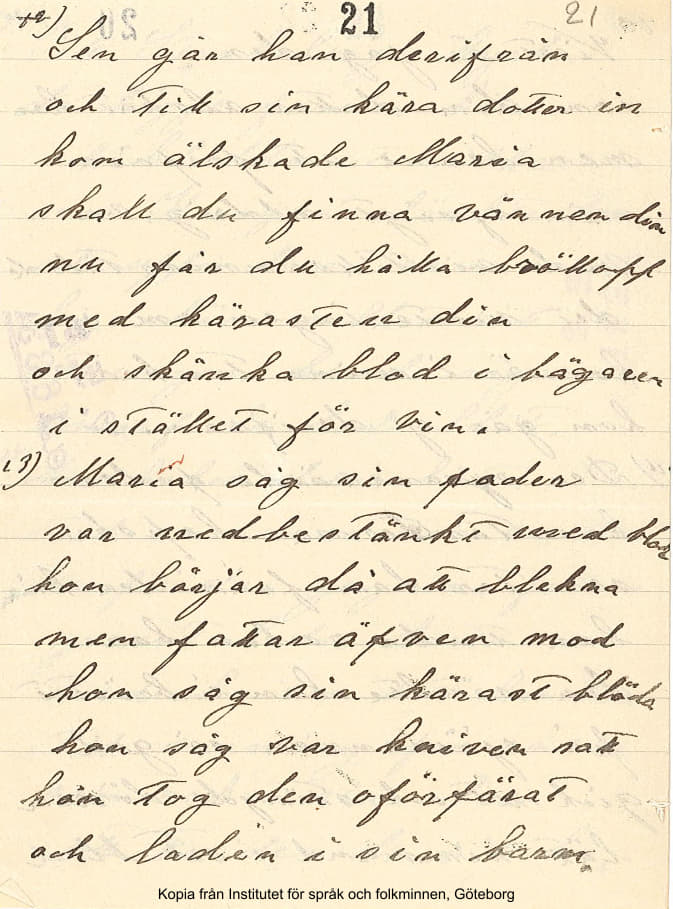 21 21
12)
Sen går han derifrån
och till sin kära dotter in
kom älskade Maria
skall du finna vännen din
nu får du hålla bröllopp
med kärasten din
och skänka blod i bägaren
i stället för vin.
13) Maria såg sin fader
var nedbestänkt med blod
hon börjar då att blekna
men fattar äfven mod
hon såg sin kärast blöda
hon såg var kniven satt
hon tog den oförfärat
och laden i sin barm.
Kopia från Institutet för språk och folkminnen, Göteborg